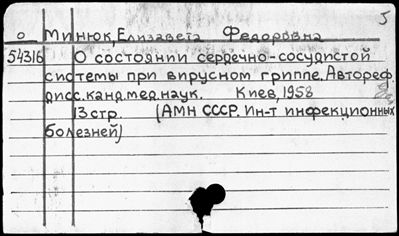 5
о Минюк, Елизавета Федоровна
54316 О состоянии сердечно-сосудистой
системы при вирусном гриппе. Автореф.
дисс. канд. мед. наук. Киев, 1958
13 стр. (АМН СССР. Ин-т инфекционных
болезней)